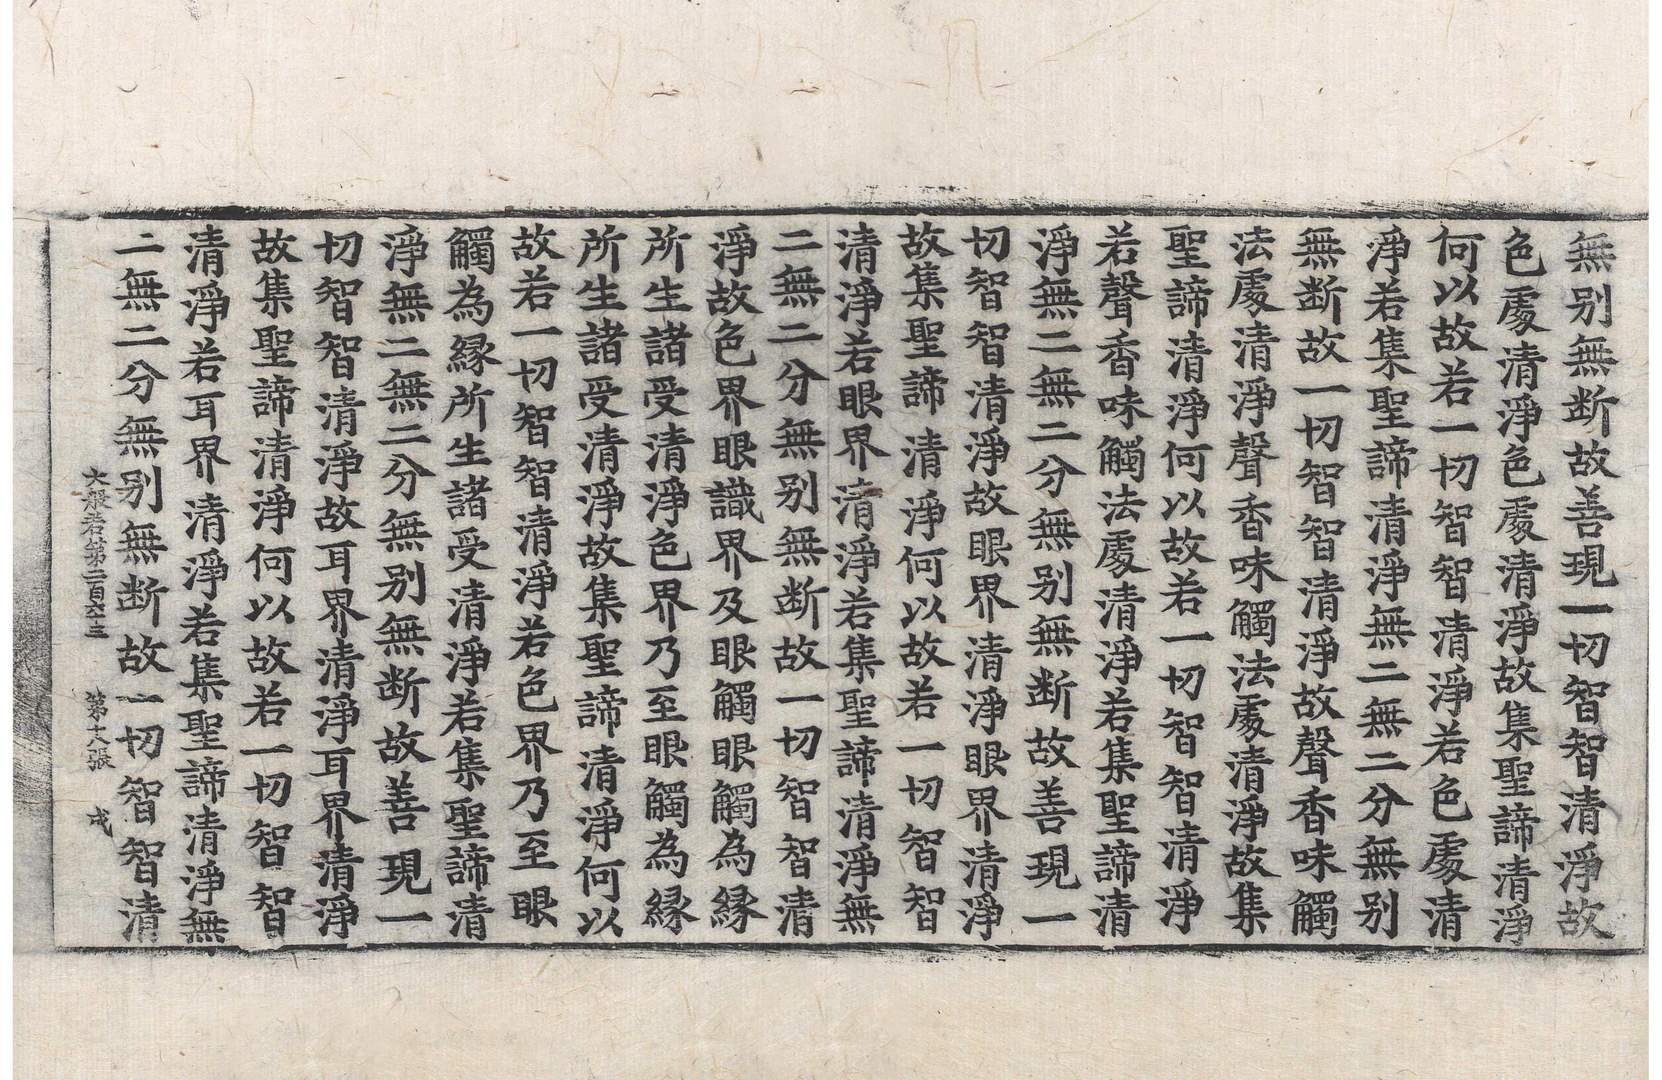 無别無断故善現一切智智清淨故
色處清淨色處清淨故集聖諦清淨
何以故若一切智智清淨若色處清
淨若集聖諦清淨無二無二分無别
無断故一切智智清淨故聲香味觸
法處清淨聲香味觸法處清淨故集
聖諦清淨何以故若一切智智清淨
若聲香味觸法處清淨若集聖諦清
淨無二無二分無别無断故善現一
切智智清淨故眼界清淨眼界清淨
故集聖諦清淨何以故若一切智智
清淨若眼界清淨若集聖諦清淨無
二無二分無别無断故一切智智清
淨故色界眼識界及眼觸眼觸為緣
所生諸受清淨色界乃至眼觸為緣
所生諸受清淨故集聖諦清淨何以
故若一切智智清淨若色界乃至眼
觸為緣所生諸受清淨若集聖諦清
淨無二無二分無别無断故善現一
切智智清淨故耳界清淨耳界清淨
故集聖諦清淨何以故若一切智智
清淨若耳界清淨若集聖諦清淨無
二無二分無别無断故一切智智清
大般若第二百六十三 第十八張 成